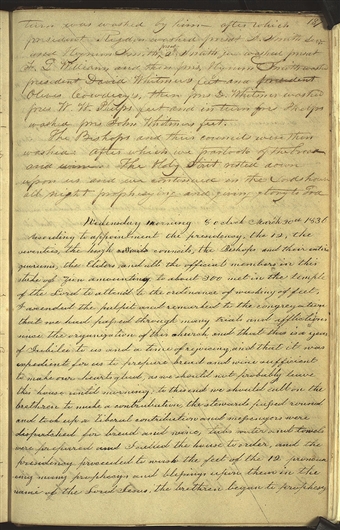 turn was washed by him after which
president S. Rigdon washed prest J. Smith Jun
and Hyrum Smith, J. Smith Jun washed presdt
F. G. Williams and then pres. Hyrum Smith washed
president David Whitmer's feet and president
Oliver Cowdery's, then pres D. Whitmer washed
pres W. W. Phelps feet and in turn pres Phelps
washed pres John Whitmers feet.
The Bishops and their council were then
washed: After which we partook of the bread
and wine. The Holy Spirit rested down
upon us and we continued in the Lords house
all night prophesying and giving glory to God
Wednesday morning 8 o clock March 30th 1836
According to appointment the presidency, the 12, the
seventies, the high councils, the Bishops and their entire
quorums, the Elders, and all the official members in this
stake of Zion amounting to about 300 met in the temple
of the Lord to attend to the ordinance of washing of feet,
I ascended the pulpit and remarked to the congregation
that we had passed through many trials and afflictions
since the organization of this church and that this is a year
of Jubilee to us and a time of rejoicing, and that it was
expedient for us to prepare bread and wine sufficient
to make our hearts glad, as we should not probably leave
this house until morning; to this end we should call on the
brethren to make a contribution, the stewards passed round
and took up a liberal contribution and messengers were
despatched for bread and wine; tubs water and towels
were prepared and I called the house to order, and the
presidency proceeded to wash the feet of the 12 pronounc
ing many prophecys and blessings upon them in the
name of the Lord Jesus, the brethren began to prophesy